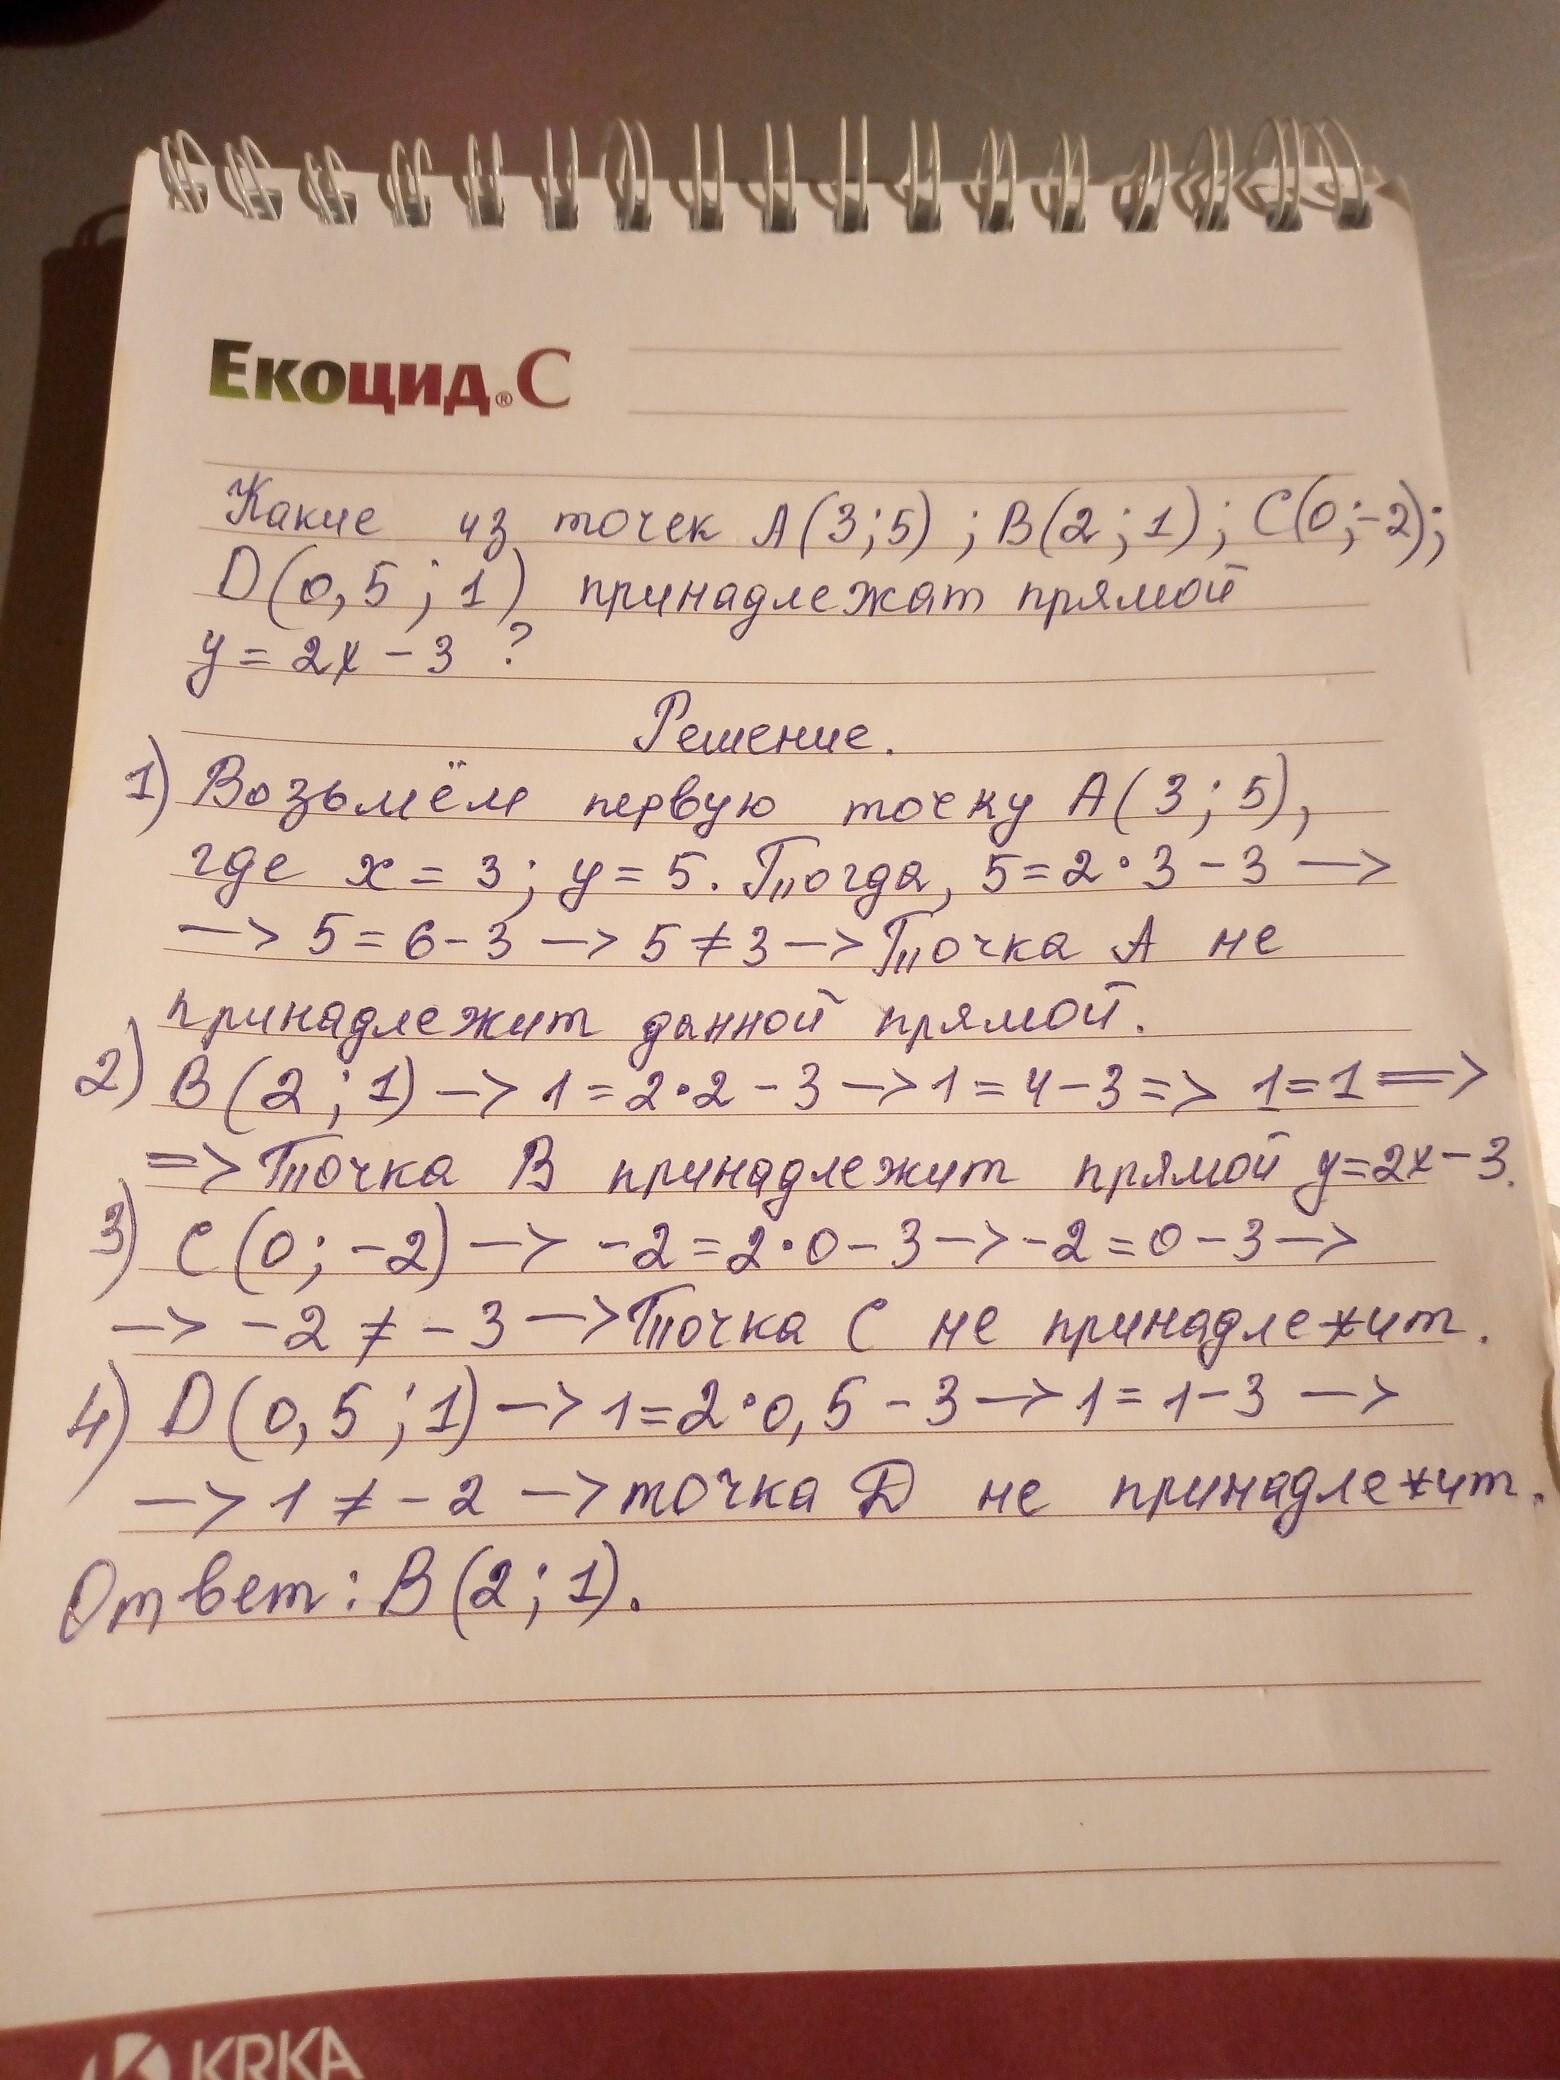 Екоцид® С
Какие из точек А(3;5) ; В(2;1) ; С(0;-2);
D(0,5;1) принадлежат прямой
y = 2x - 3 ?
Решение.
1) Возьмём первую точку А(3;5),
где x = 3; y = 5. Тогда, 5 = 2·3 - 3 —>
—> 5 = 6 - 3 —> 5 ≠ 3 —> Точка А не
принадлежит данной прямой.
2) В(2;1) —> 1 = 2·2 - 3 —> 1 = 4 - 3 => 1 = 1 =>
=> Точка В принадлежит прямой y = 2x - 3.
3) С(0; -2) —> -2 = 2·0 - 3 —> -2 = 0 - 3 —>
—> -2 ≠ -3 —> Точка С не принадлежит.
4) D(0,5;1) —> 1 = 2·0,5 - 3 —> 1 = 1 - 3 —>
—> 1 ≠ -2 —> точка D не принадлежит.
Ответ: В(2;1).
KRKA